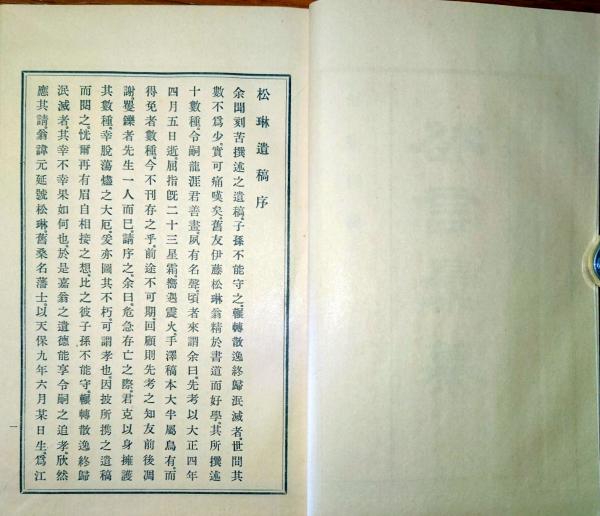 松琳遺稿序
余聞刻苦撰述之遺稿。子孫不能守之。輾轉散逸終歸泯滅者。世間其
數不爲少。實可痛嘆矣。舊友伊藤松琳翁精於書道而好學。其所撰述
十數種。令嗣龍涯君善畫。夙有名聲。頃者來謂余曰。先考以大正四年
四月五日逝。屈指旣二十三星霜。嚮遇震火。手澤稿本大半屬烏有。而
得免者數種。今不刊存之乎。前途不可期。回顧則先考之知友前後凋
謝。矍鑠者先生一人而已。請序之。余曰。危急存亡之際。君克以身擁護
其數種。幸脫蕩燼之大厄。爰亦圖其不朽。可謂孝也。因披所携之遺稿
而閱之。恍爾再有眉目相接之想。比之彼子孫不能守。輾轉散逸終歸
泯滅者。其幸不幸果如何也。於是嘉翁之遺德能享令嗣之追孝。欣然
應其請。翁諱元延。號松琳。舊桑名藩士。以天保九年六月某日生。爲江
一